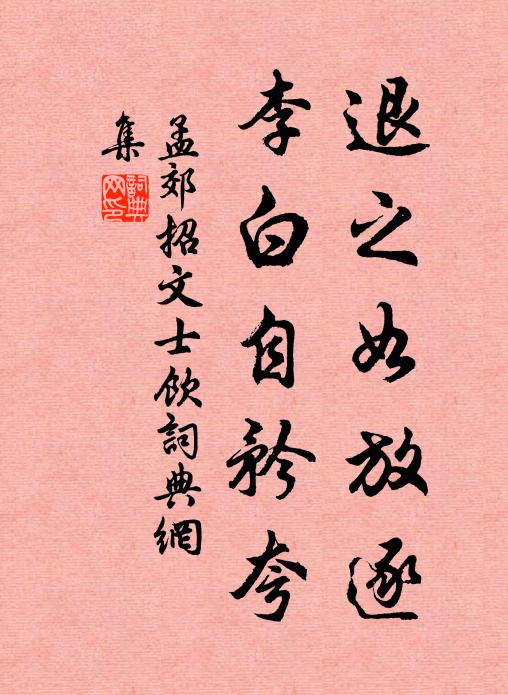 退之如放逐
李白自矜夸
孟郊招文士飲詞典網
集
詞典网印